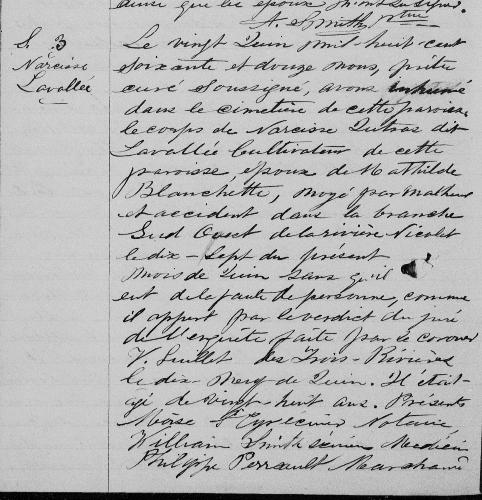 ainsi que les époux
A. Smith Ptre
S. 3
Narcisse
Lavallée
Le vingt Juin mil-huit-cent
soixante et douze nous, prêtre
curé soussigné, avons inhumé
dans le cimetière de cette paroisse
le corps de Narcisse Dutras dit
Lavallée Cultivateur de cette
paroisse, époux de Mathilde
Blanchette, noyé par malheur
et accident dans la branche
Sud Ouest de la rivière Nicolet
le dix-Sept du présent
mois de Juin sans qu'il
est de la faute de personne, comme
il appert par le verdict du juré
de l'enquête faite par le coroner
V. Guillet des Trois-Rivières
le dix-neuf de Juin. Il était
agé de vingt-huit ans. Présents
Moïse Notaire,
William Médecin
Philippe Perrault Marchand